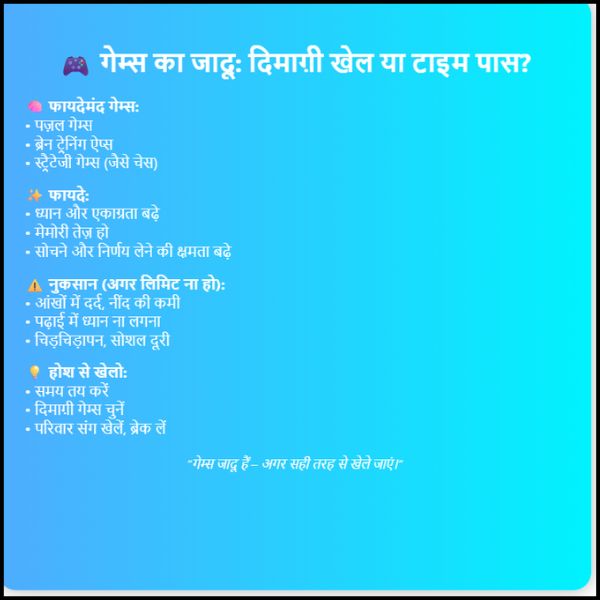 🎮 गेम्स का जादू: दिमाग़ी खेल या टाइम पास?
🧠 फायदेमंद गेम्स:
• पज़ल गेम्स
• ब्रेन ट्रेनिंग ऐप्स
• स्ट्रैटेजी गेम्स (जैसे चेस)
✨ फायदे:
• ध्यान और एकाग्रता बढ़े
• मेमोरी तेज़ हो
• सोचने और निर्णय लेने की क्षमता बढ़े
⚠️ नुकसान (अगर लिमिट ना हो):
• आंखों में दर्द, नींद की कमी
• पढ़ाई में ध्यान ना लगना
• चिड़चिड़ापन, सोशल दूरी
💡 होश से खेलो:
• समय तय करें
• दिमाग़ी गेम्स चुनें
• परिवार संग खेलें, ब्रेक लें
"गेम्स जादू हैं – अगर सही तरह से खेले जाएं।"